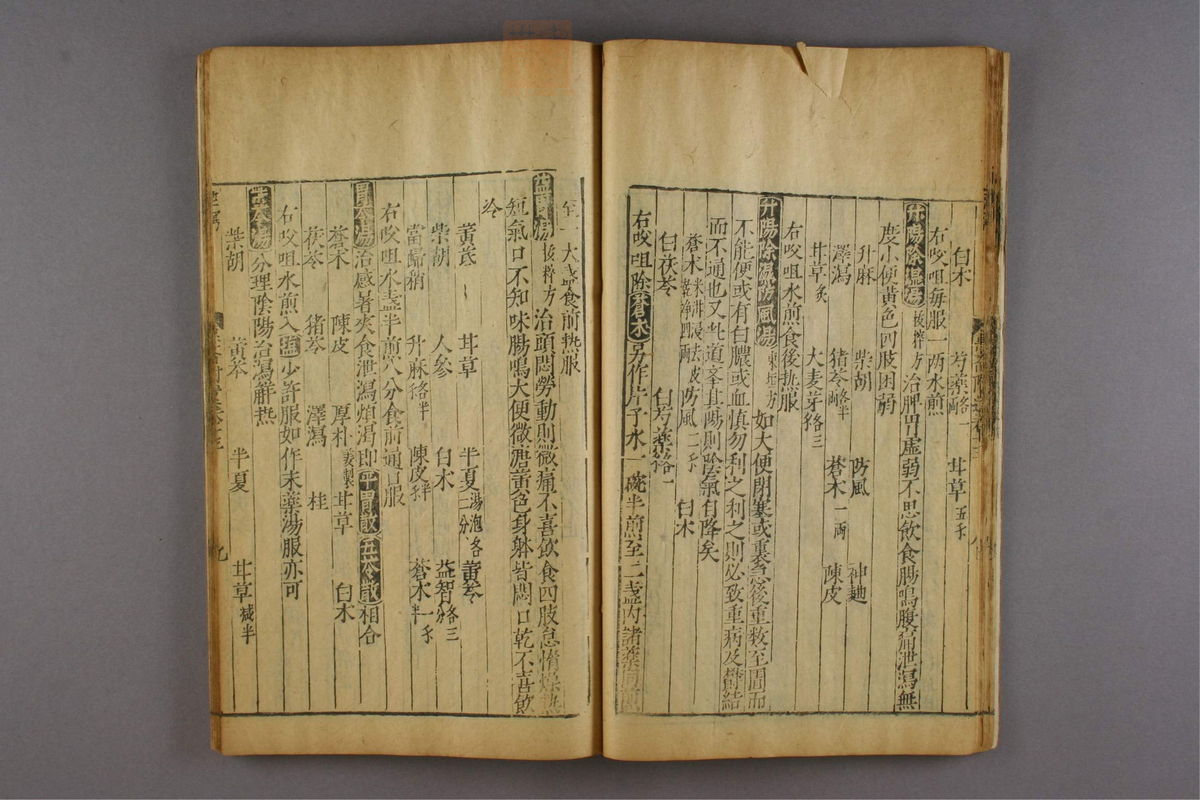 白朮 芍藥各一兩 甘草五錢
右㕮咀每服一兩水煎
升陽除濕湯 拔粹方 治脾胃虛弱不思飲食腸鳴腹痛泄瀉無
度小便黃色四肢困弱
升麻 柴胡 防風 神麯
澤瀉 猪苓各半兩 蒼朮一兩 陳皮
甘草炙 大麦芽各三
右㕮咀水煎食後热服
升陽除濕防風湯 東垣方 如大便閉塞或裏急後重数至圊而
不能便或有白膿或血慎勿利之利之則必致重病及鬱結
而不通也又此道 其陽則陰氣自降矣
蒼朮米泔浸去皮 淨四兩 防風二錢 白朮
白茯苓 白芍藥各一
右㕮咀除蒼朮另作片子水一碗半煎至二盞内諸藥同煎
至一大盞食前热服
益胃湯 拔粹方 治頭悶勞動則微痛不喜飲食四肢怠惰燥热
短氣口不知味腸鳴大便微溏黃色身躰皆悶口乾不喜飲
冷
黃芪 甘草 半夏湯泡各二分 黃芩
柴胡 人參 白朮 益智各三分
當歸稍 升麻各半 陳皮 蒼朮一錢半
右㕮咀水盞半煎八分食前通口服
胃苓湯 治感暑夾食泄瀉煩渴即平胃散五苓散相合
蒼朮 陳皮 厚朴姜製 甘草 白朮
茯苓 猪苓 澤瀉 桂
右㕮咀水煎入鹽少許服如作末藥湯服亦可
柴苓湯 分理陰陽治瀉觧热
柴胡 黃芩 半夏 甘草减半
九